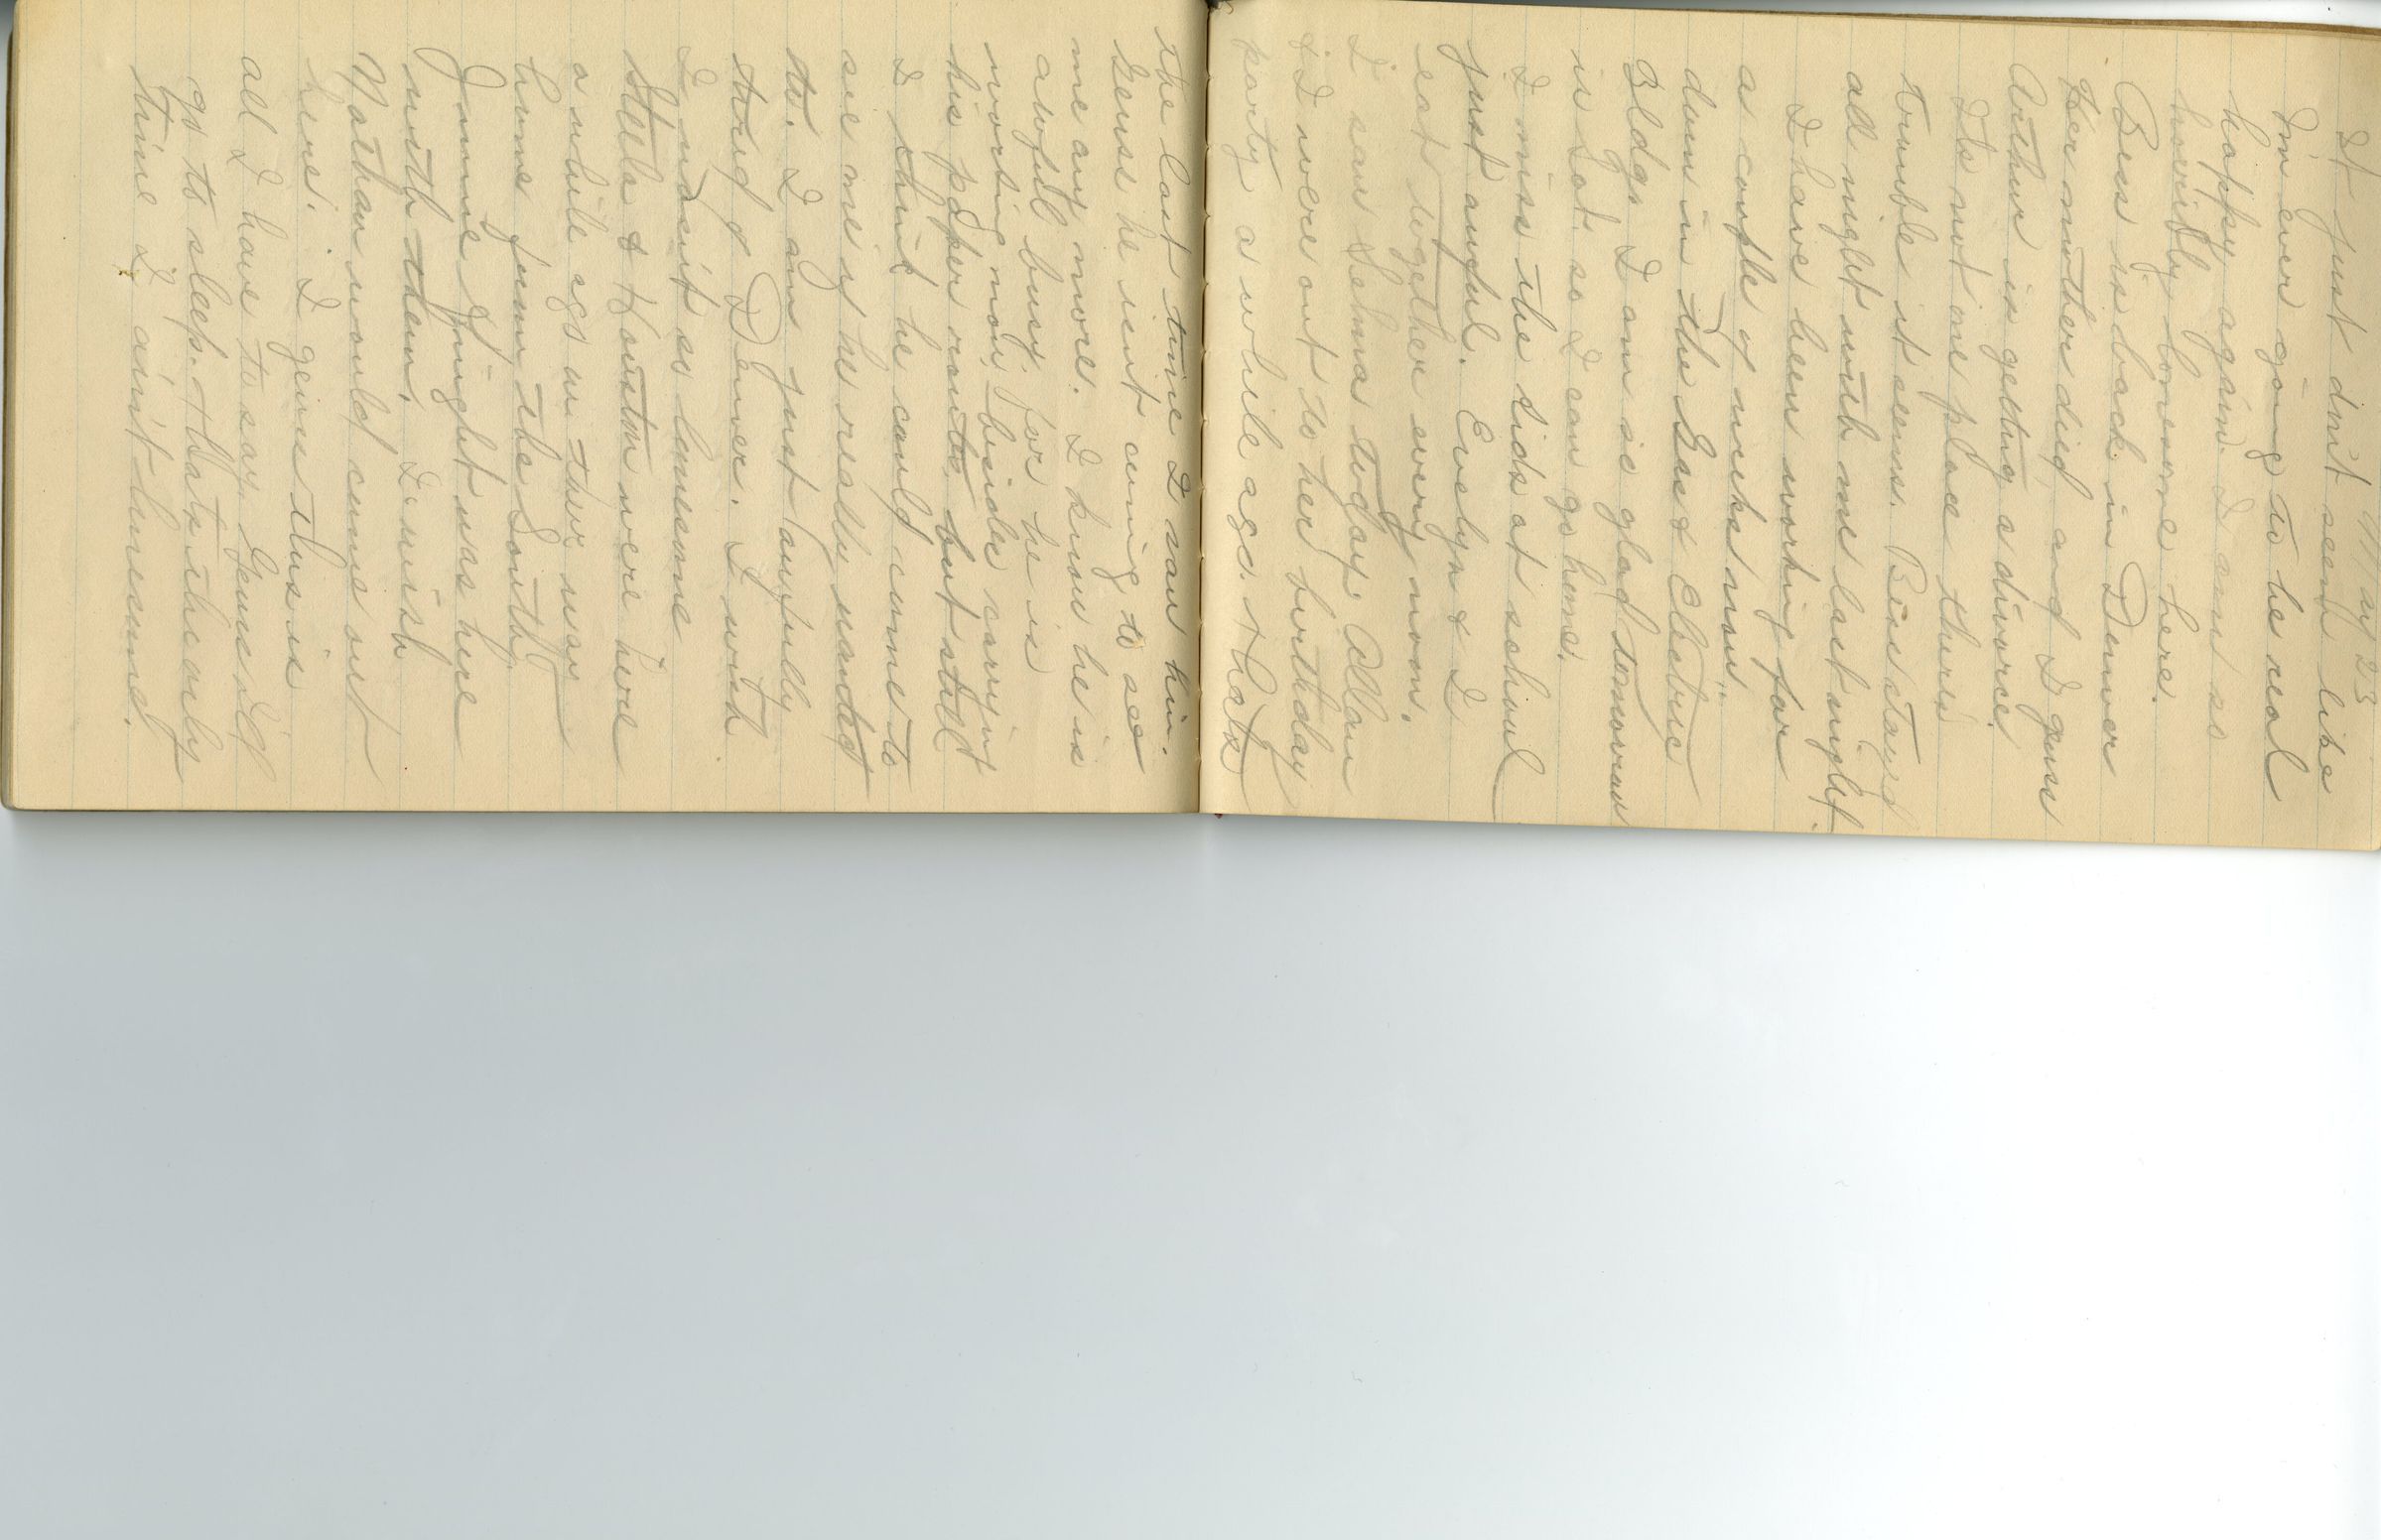 May 23
It just don't seem like
I'm ever going to be real
happy again. I am so
horribly lonesome here.
Bess is back in Denver
Her mother died and I guess
Arthur is getting a divorce.
Its not one place theres
trouble it seems. Bess stayed
all night with me last night.
I have been working for
a couple of weeks now..
down in the Gas & Electric
Bldg. I am so glad tomorrow
is Sat. so I can go home.
I miss the kids at school
just awful. Evelyn & I
eat together every noon.
I saw Selma today. Allan
& I were out to her birthday
party a while ago. thats
the last time I saw him.
Genss he isnt coming to see
me any more. I know he is
awful busy. for he is
working now, besides carrying
his paper route but still
I think he could come to
see me if he really wanted
to. I am just awfully
tired of Denver. I wish
I wasnt so lonesome
Stella & Houston were here
a while ago on thur way
home from the South.
Jimmie Knight was here
with them. I wish
Nathan would come out
here. I geuss this is
all I have to say. Geuss Ill
go to sleep. thats the only
time I aint lonesome.